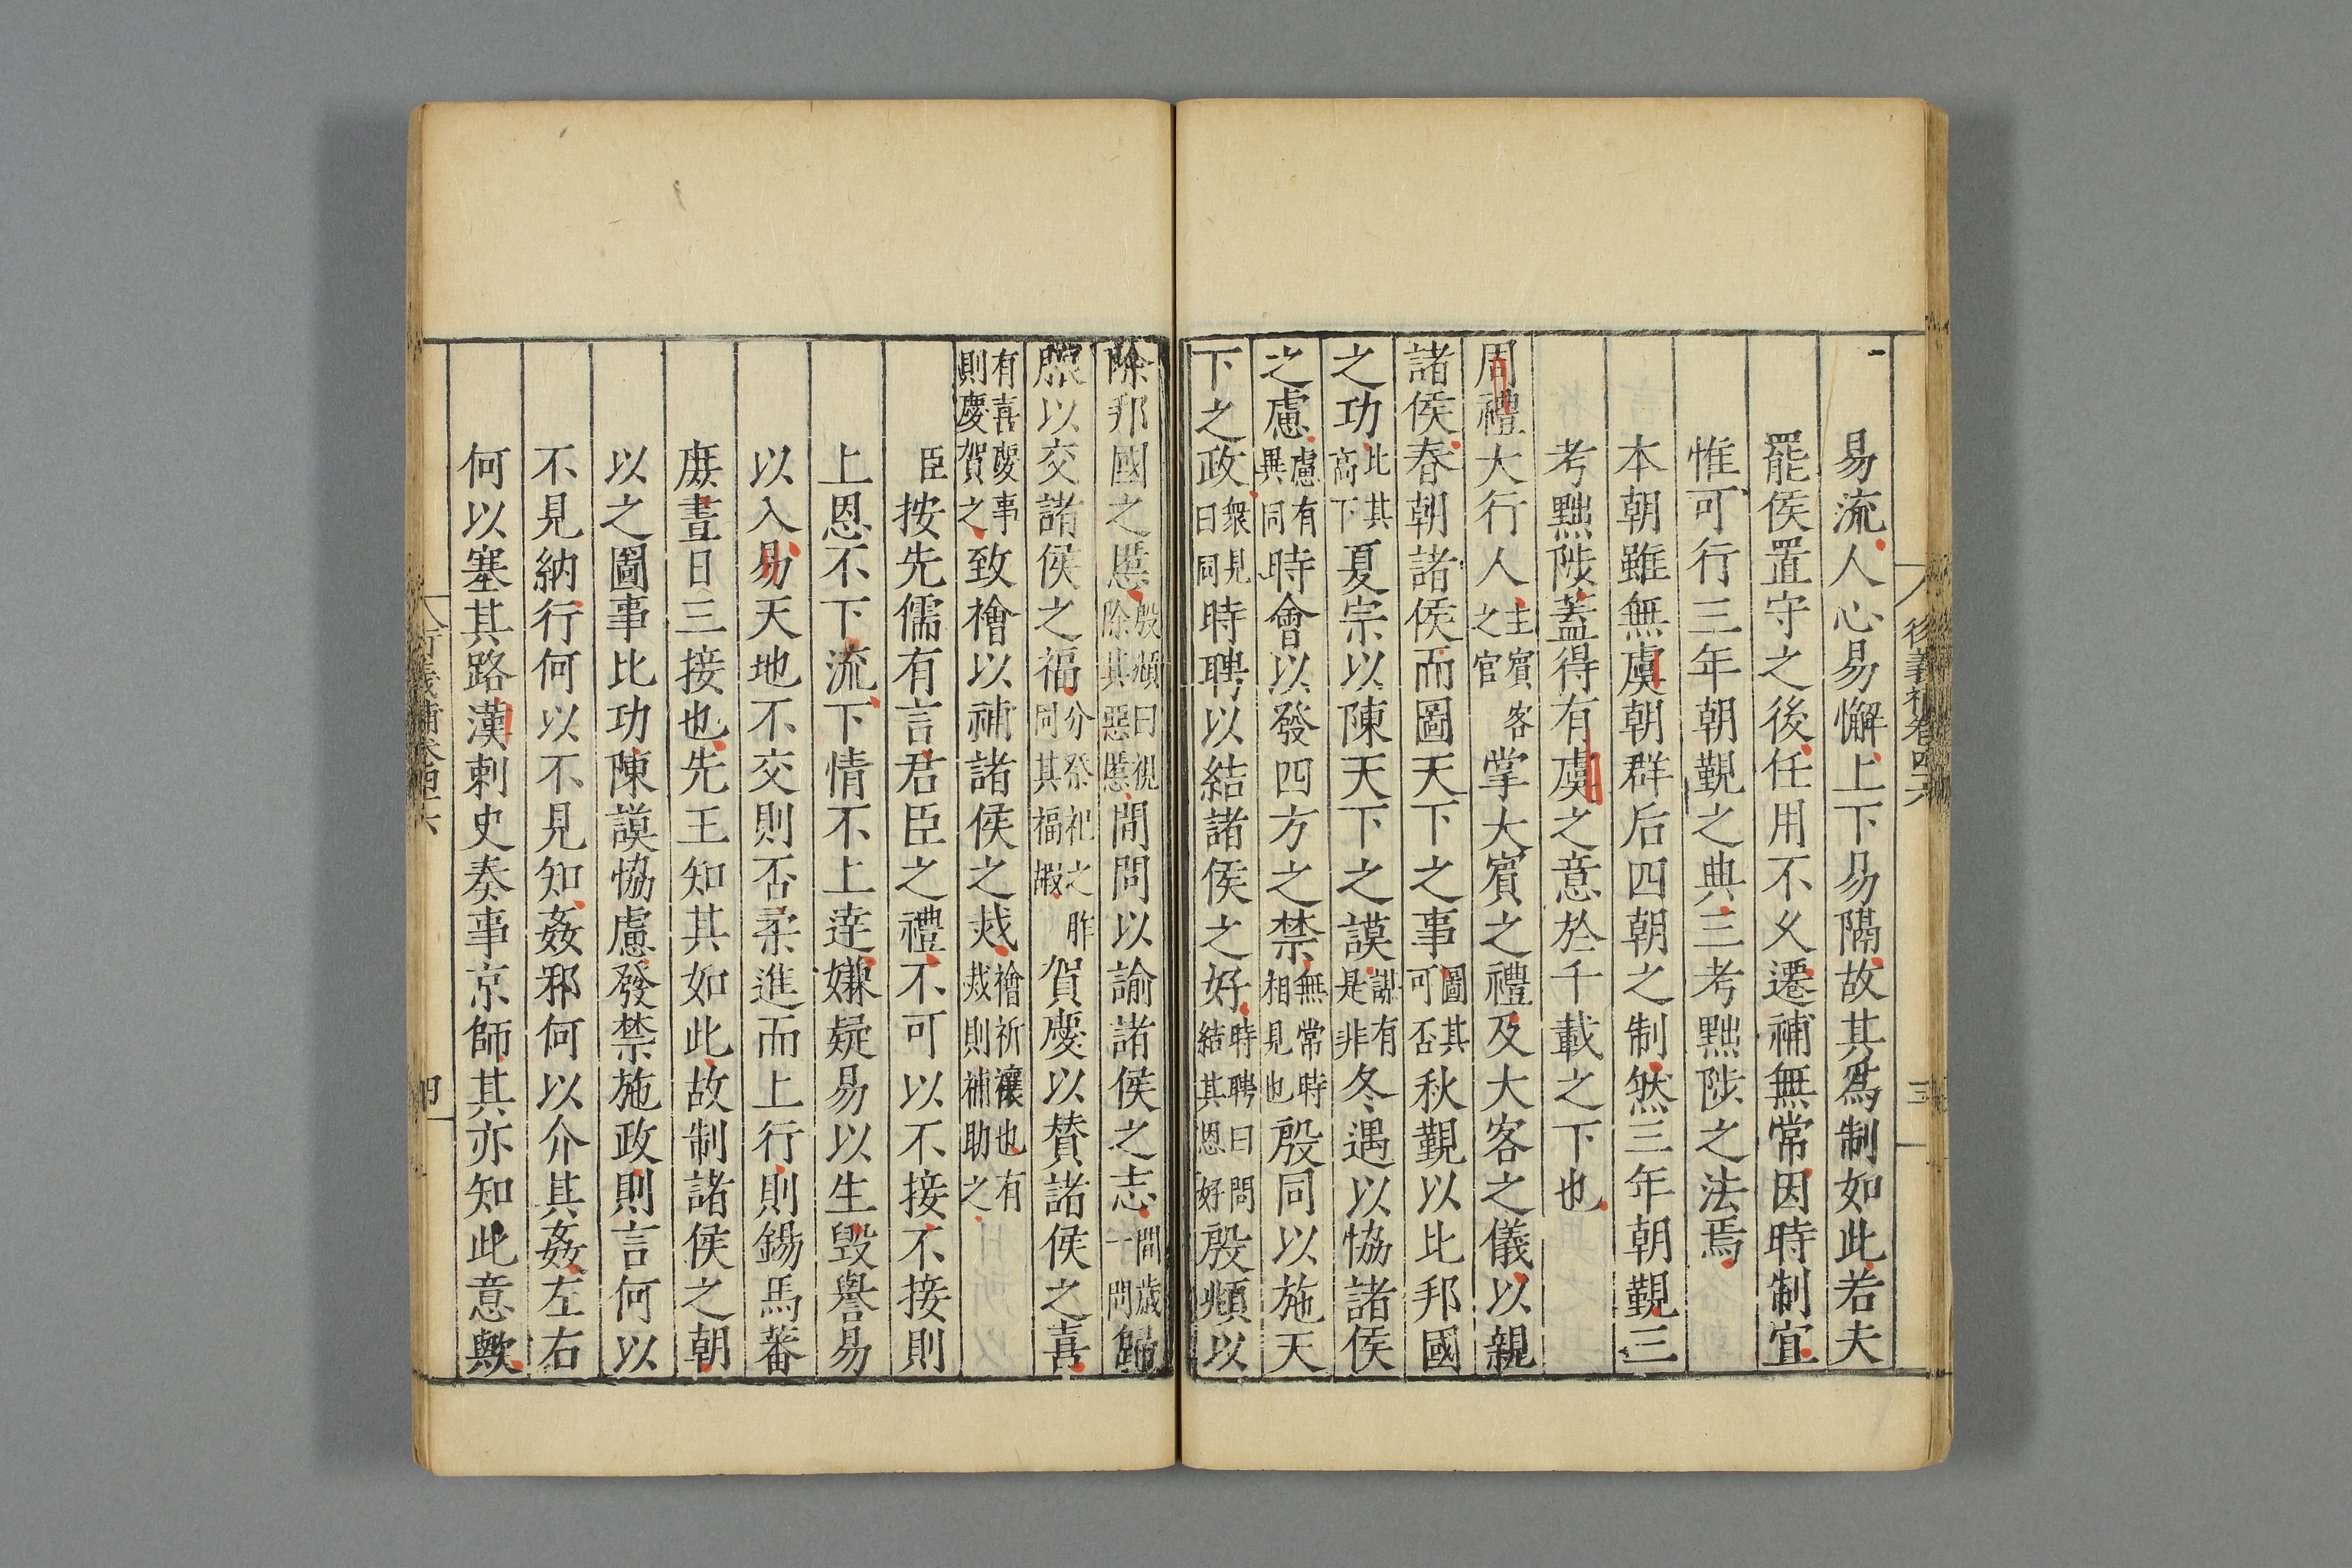 易流人心易懈上下易隔故其爲制如此若夫
罷侯置守之後任用不乆遷補無常因時制宜
惟可行三年朝覲之典三考黜陟之法焉
本朝雖無虞朝群后四朝之制然三年朝覲三
考黜陟蓋得有虞之意於千載之下也
周禮大行人主賓客之官掌大賓之禮及大客之儀以親
諸侯春朝諸侯而圖天下之事圖其可否秋覲以比邦國
之功比其高下夏宗以陳天下之謨謨有是非冬遇以恊諸侯
之慮慮有異同時會以發四方之禁無常時相見也殷同以施天
下之政衆見曰同時聘以結諸侯之好時聘曰問結其恩好殷頫以
除邦國之慝殷頫曰視除其惡慝間問以諭諸侯之志間歲一問歸
脤以交諸侯之福分祭祀之胙同其福嘏賀慶以賛諸侯之喜
有喜慶事則慶賀之致禬以補諸侯之烖禬祈禳也有烖則補助之
臣按先儒有言君臣之禮不可以不接不接則
上恩不下流下情不上逹嫌疑易以生毁譽易
以入易天地不交則否柔進而上行則錫馬蕃
庻晝日三接也先王知其如此故制諸侯之朝
以之圖事比功陳謨恊慮發禁施政則言何以
不見納行何以不見知姦邪何以介其姦左右
何以塞其路漢刺史奏事京師其亦知此意歟